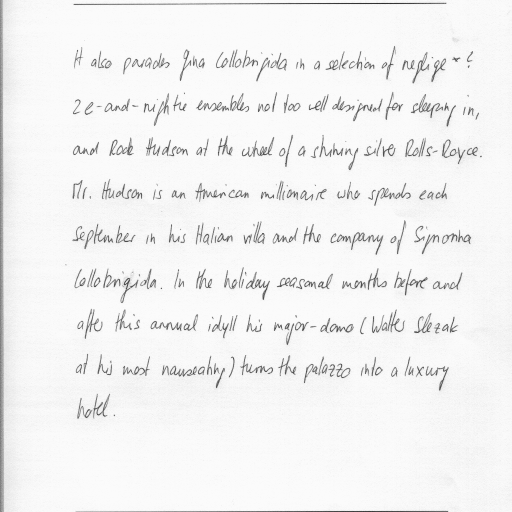 It also parades Gina Lollobrigida in a selection of neglige
2e-and-nightie ensembles not too well designed for sleeping in,
and Rock Hudson at the wheel of a shining silver Rolls-Royce.
Mr. Hudson is an American millionaire who spends each
September in his Italian villa and the company of Signorina
Lollobrigida. In the holiday seasonal months before and
after this annual idyll his major-domo (Walter Slezak
at his most nauseating) turns the palazzo into a luxury
hotel.